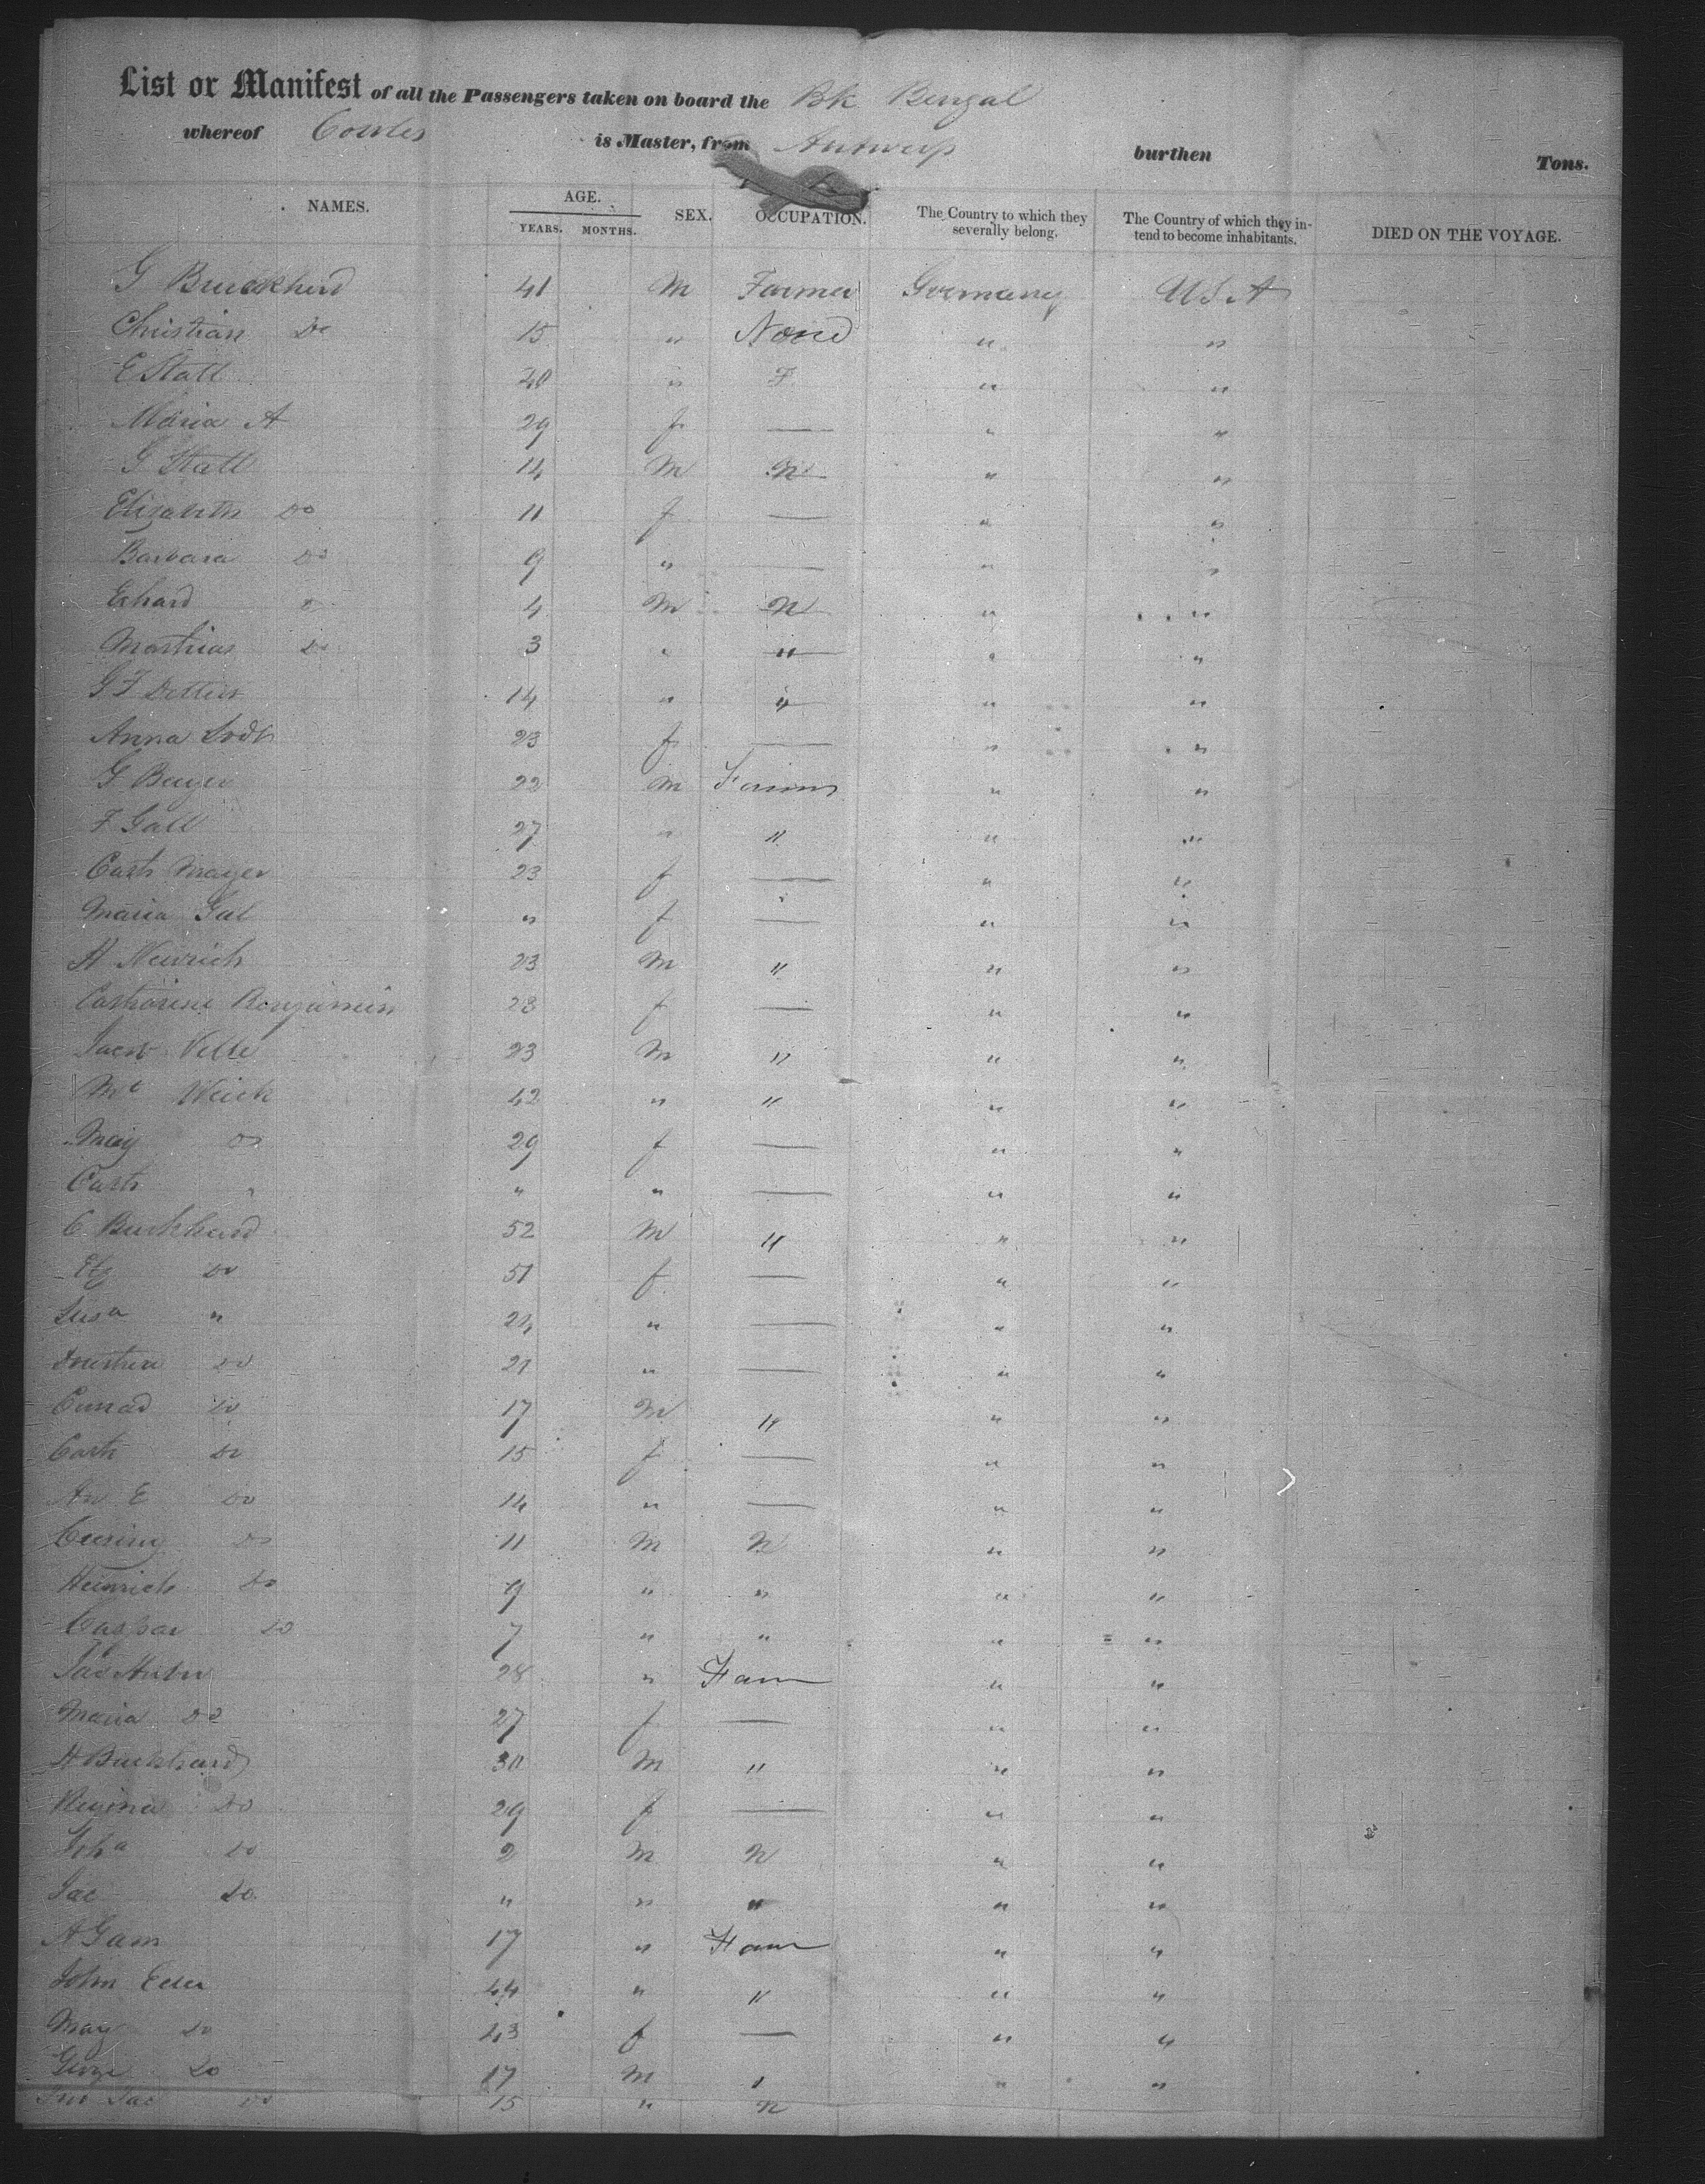 List or Manifest of all the Passengers taken on board the Bk Bengal
whereof Cowles is Master, from Antwerp burthen Tons.
NAMES. AGE. YEARS. MONTHS. SEX. OCCUPATION. The Country to which they severally belong. The Country of which they intend to become inhabitants. DIED ON THE VOYAGE.
G Bruckherd 41 M Farmer Germany USA
Christian Do 15 " None " "
E Stall 40 " F " "
Maria A 29 f — " "
G Stall 14 M N " "
Elizabeth Do 11 f — " "
Barbara Do 9 " — " "
Erhard Do 4 M N " "
Mathias Do 3 " " " "
G F 14 " " " "
Anna 23 f — " "
G Beyer 22 M Farmer " "
F Gall 27 " " " "
Cath Mayer 23 f — " "
Maria Gal " f — " "
H Newrich 23 M " " "
Catharine Benjamin 23 f — " "
Jacob Velte 23 M " " "
Mc Weick 42 " " " "
Mary Do 29 f — " "
Cath " " " — " "
C Burkhard 52 M " " "
Do 51 f — " "
Susa " 24 " — " "
Do 21 " — " "
Conrad Do 17 M " " "
Cath Do 15 f — " "
An E Do 14 " — " "
Do 11 M N " "
Heinrich Do 9 " " " "
Caspar Do 7 " " " "
Jac 28 " Farm " "
Maria Do 27 f — " "
H Burkhard 30 M " " "
Regina Do 29 f — " "
Joha Do 2 M N " "
Jac Do " " " " "
A Gam 17 " Farm " "
John Eder 44 " " " "
Mary Do 43 f — " "
George Do 17 M " " "
Jac Do 15 " N